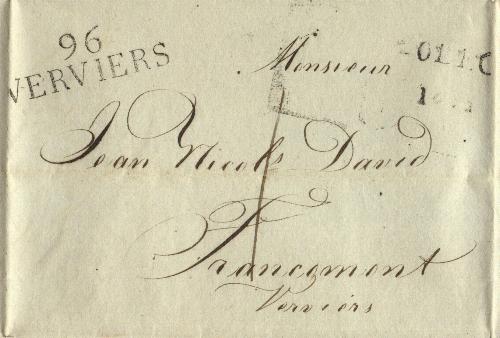 96
VERVIERS
Monsieur
Jean Nicols David
Francomont
Verviers